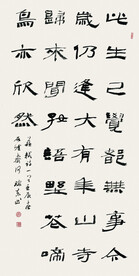 此生已覺都無事今
歲仍逢大有年山寺
歸來聞好語野花啼
鳥亦欣然